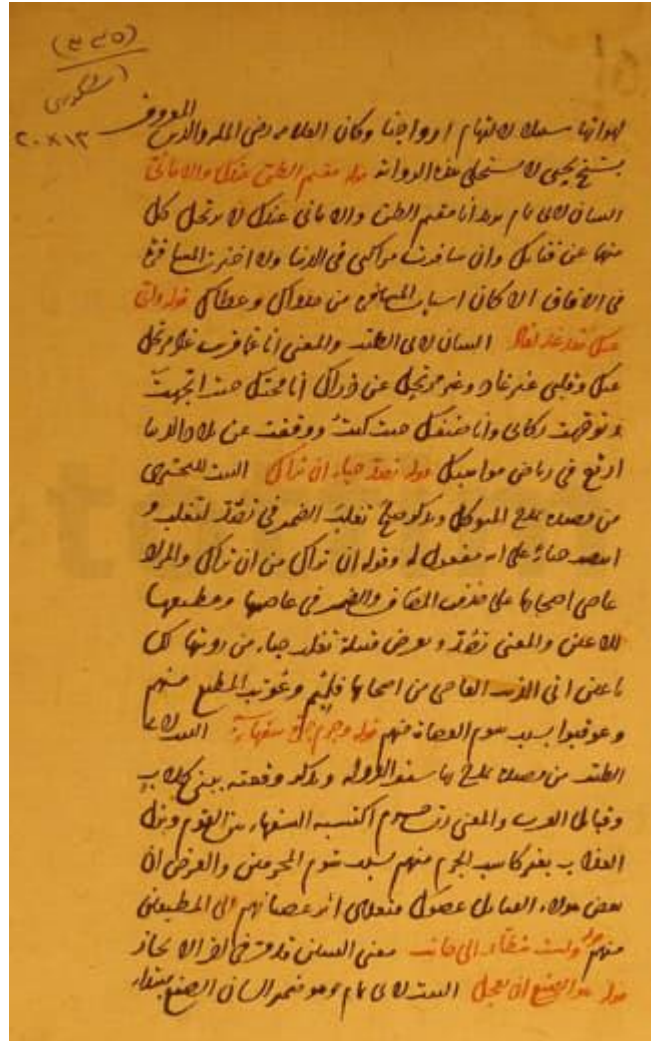 (٤٤٥)
٢٠×١٣
لهواتها سبيلا لالتهام ارواحنا وكان العلامه رضى المله والدين المعروف
بشيخ يحيى لا يستحلى هذه الروايه قوله مقيم الظن عندك والامانى
البيتان لابى تمام يريد انا مقيم الظن والامانى عندك لا يرتحل كل
منها عن فنائك وان سافرت مراكبى فى البلاد ولا اخترت المسافرة
فى الافاق الا كان اسباب المسافرة من جدواك وعطائك قوله وانى
عنك بعد غد لغاد البيتان لابى الطيب والمعنى انا مرتحل
عنك وقلبى غير غاد وغير مرتحل عن ذراك أنا محبك حيث اتجهت
وتوجهت ركابى وانا ضيفك حيث كنت ووقفت من بلاد الدنيا
ارتع فى رياض مواهبك قوله تصد حياء ان تراك البيت للبحترى
من قصيدة يمدح المتوكل ويذكر صلح تغلب الضمير فى تصد لتغلب و
انتصب حياء على انه مفعول له وقوله ان تراك من ان تراك والمراد
عاصى اصحابها على حذف المضاف والضمير فى عاصيها ومطيعها
للاعين والمعنى تصد وتعرض قبيلة تغلب حياء من رؤيتها لك
باعين اتى الذنب العاصى من اصحابها فليم وعوتب المطيع منهم
وعوقبوا بسبب شوم العصاة منهم قوله وجرم جره سفهاء البيت لابى
الطيب من قصيدة يمدح بها سيف الدوله ويذكر وقعته ببنى كلاب
وقبائل العرب والمعنى رب جرم اكتسبه السفهاء من القوم ونزل
العذاب بغير كاسب الجرم منهم بسبب شوم المجرمين والغرض ان
بعض هولاء القبائل عصوك فتعدى اثر عصيانهم الى المطيعين
منهم قوله ولست بنظار الى جانب معنى البيتين قد مر فى اخر الايجاز
قوله هو الصنع ان يعجل البيت لابى تمام وهو ضمير الشان الصنع مبتداء